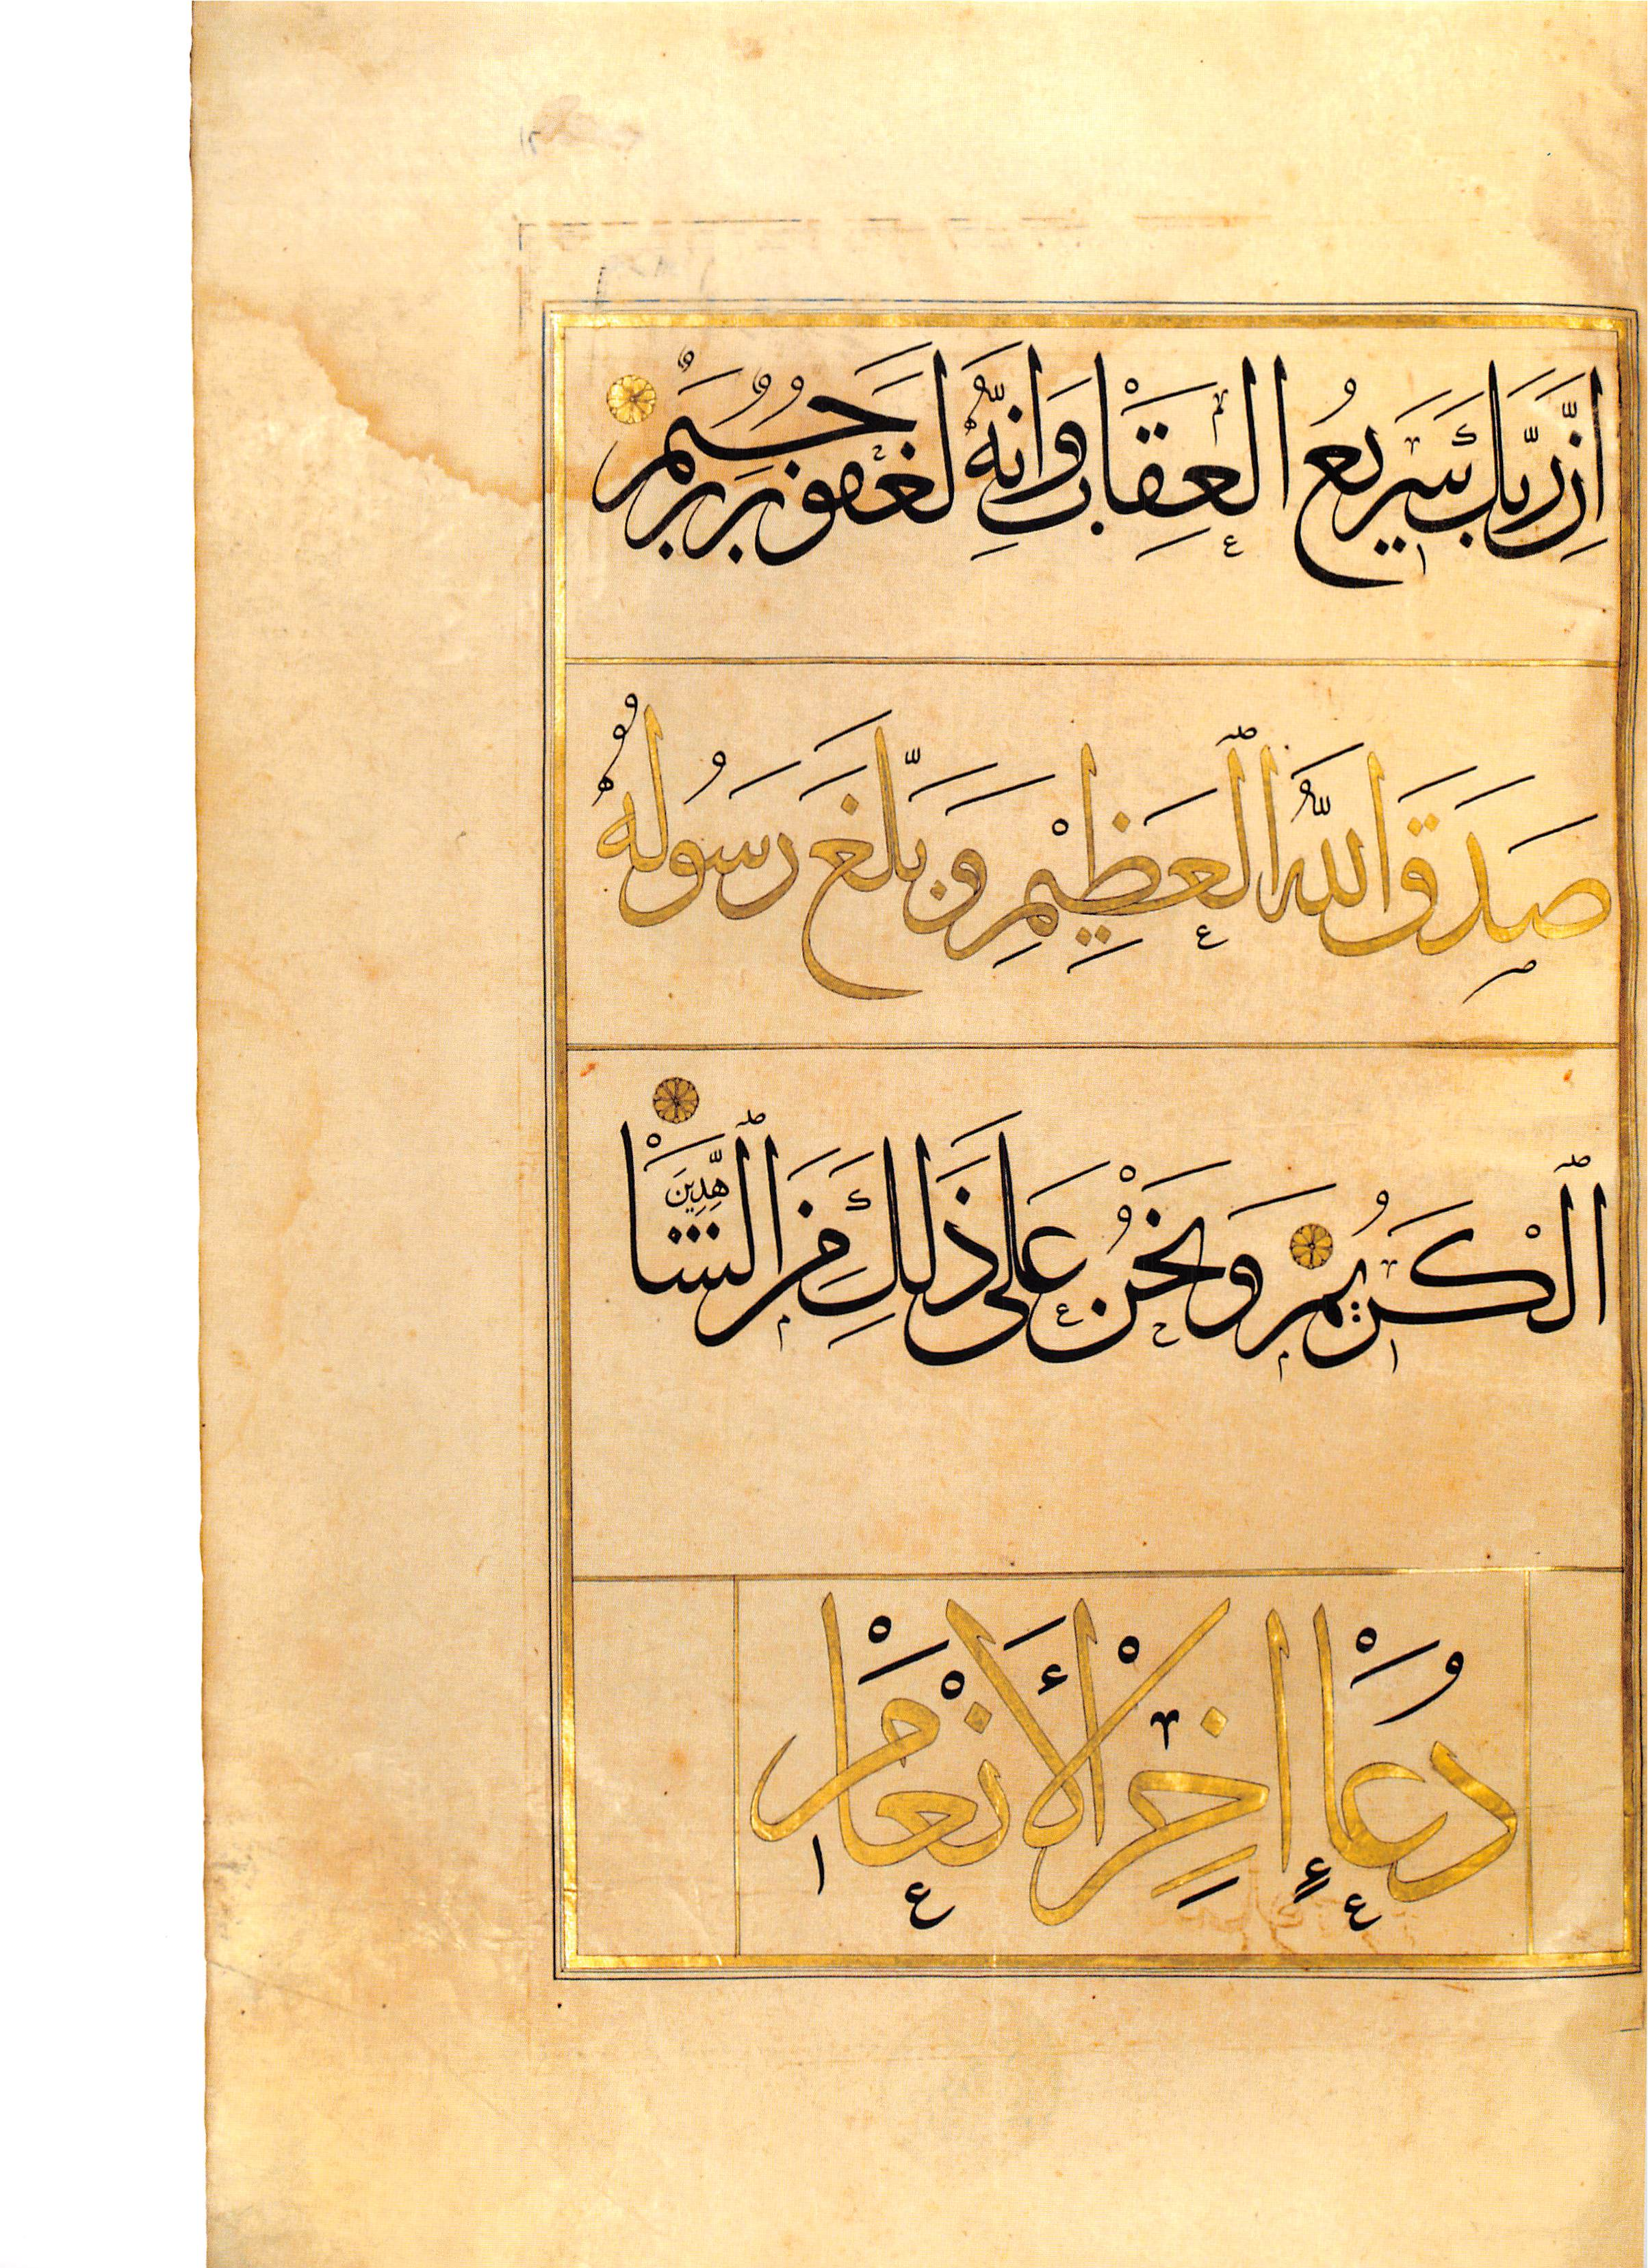 اِنَّ رَبَّكَ سَرِيعُ الْعِقَابِ وَاِنَّهُ لَغَفُورٌ رَحِيمٌ
صَدَقَ اللّٰهُ ٱلْعَظِيْمِ وَبَلَّغَ رَسُولُهُ
ٱلْكَرِيمُ وَنَحْنُ عَلَى ذَلِكَ مِنَ ٱلشَّاهِدِينَ
دُعَاءِ اخِرِ الْأَنْعَامْ